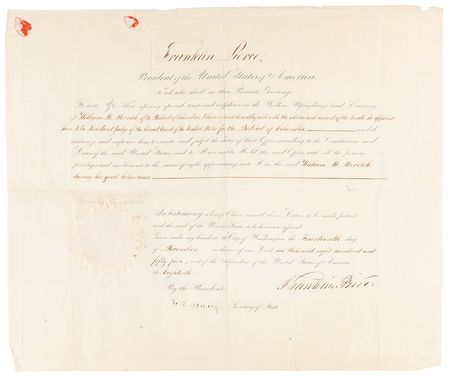 Franklin Pierce,
President of the United States of America.
To all who shall see these Presents, Greeting:
Know Ye, That reposing special trust and confidence in the Wisdom, Uprightness and Learning
of William M. Merrick, of the District of Columbia, I have nominated, and by and with the advice and consent of the Senate, do appoint
him to be Assistant Judge of the Circuit Court of the United States for the District of Columbia and do
authorize and empower him to execute and fulfil the duties of that Office according to the Constitution and
Laws of the said United States; and to Have and to Hold the said Office with all the powers,
privileges and emoluments to the same of right appertaining unto Him, the said William M. Merrick,
during his good behaviour.
In testimony whereof I have caused these Letters to be made patent
and the seal of the United States to be hereunto affixed.
Given under my hand at the City of Washington the Fourteenth day
of December in the year of our Lord one thousand eight hundred and
fifty five, and of the Independence of the United States of America
the Eightieth.
Franklin Pierce
By the President
W. L. Marcy Secretary of State.